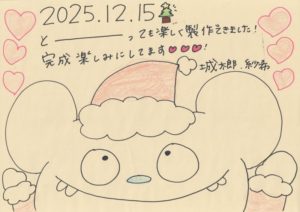 2025.12.15🎄
と―――っても楽しく製作できました!
完成楽しみにしてます♥♥♥!
城太郎、紗希